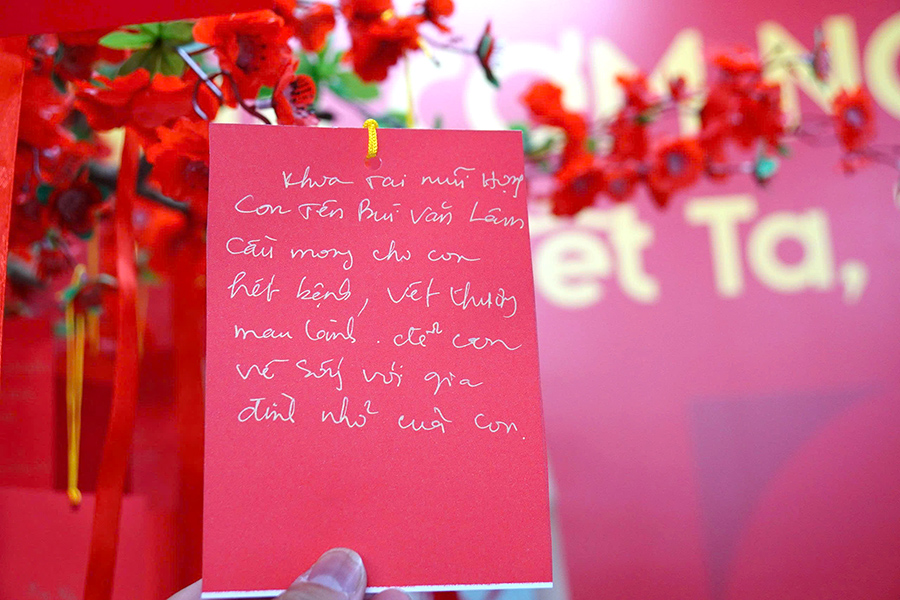 CƠM NO
Tết Ta,
Khoa Tai mũi Họng
Con Tên Bùi Văn Lâm
Cầu mong cho con
hết bệnh, vết thương
mau lành. để con
về sống với gia
đình nhỏ của con.